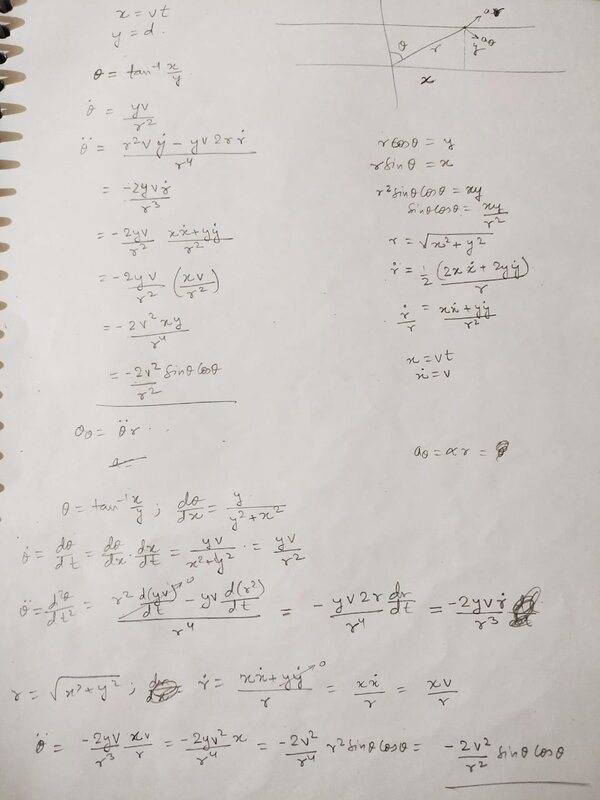 x = vt
y = d.
θ = tan⁻¹ x/y
θ̇ = yv/r²
θ̈ = (r²vẏ − yv2rṙ)/r⁴
= −2yvṙ/r³
= −2yv/r² (xẋ+yẏ)/r²
= −2yv/r² (xv/r²)
= −2v²xy/r⁴
= −2v²/r² sinθ cosθ
a_θ = θ̈ r
a_r
a_θ
θ
r
y
x
r cosθ = y
r sinθ = x
r² sinθ cosθ = xy
sinθ cosθ = xy/r²
r = √(x²+y²)
ṙ = 1/2 (2xẋ + 2yẏ)/r
ṙ/r = (xẋ+yẏ)/r²
x = vt
ẋ = v
a_θ = αr =
θ = tan⁻¹ x/y ; dθ/dx = y/(y²+x²)
θ̇ = dθ/dt = dθ/dx · dx/dt = yv/(x²+y²) = yv/r²
θ̈ = d²θ/dt² = (r² d(yv)/dt → 0 − yv d(r²)/dt)/r⁴ = − yv2r/r⁴ dr/dt = −2yvṙ/r³
r = √(x²+y²) ; ṙ = (xẋ+yẏ → 0)/r = xẋ/r = xv/r
θ̈ = −2yv/r³ xv/r = −2yv²x/r⁴ = −2v²/r⁴ r² sinθ cosθ = −2v²/r² sinθ cosθ